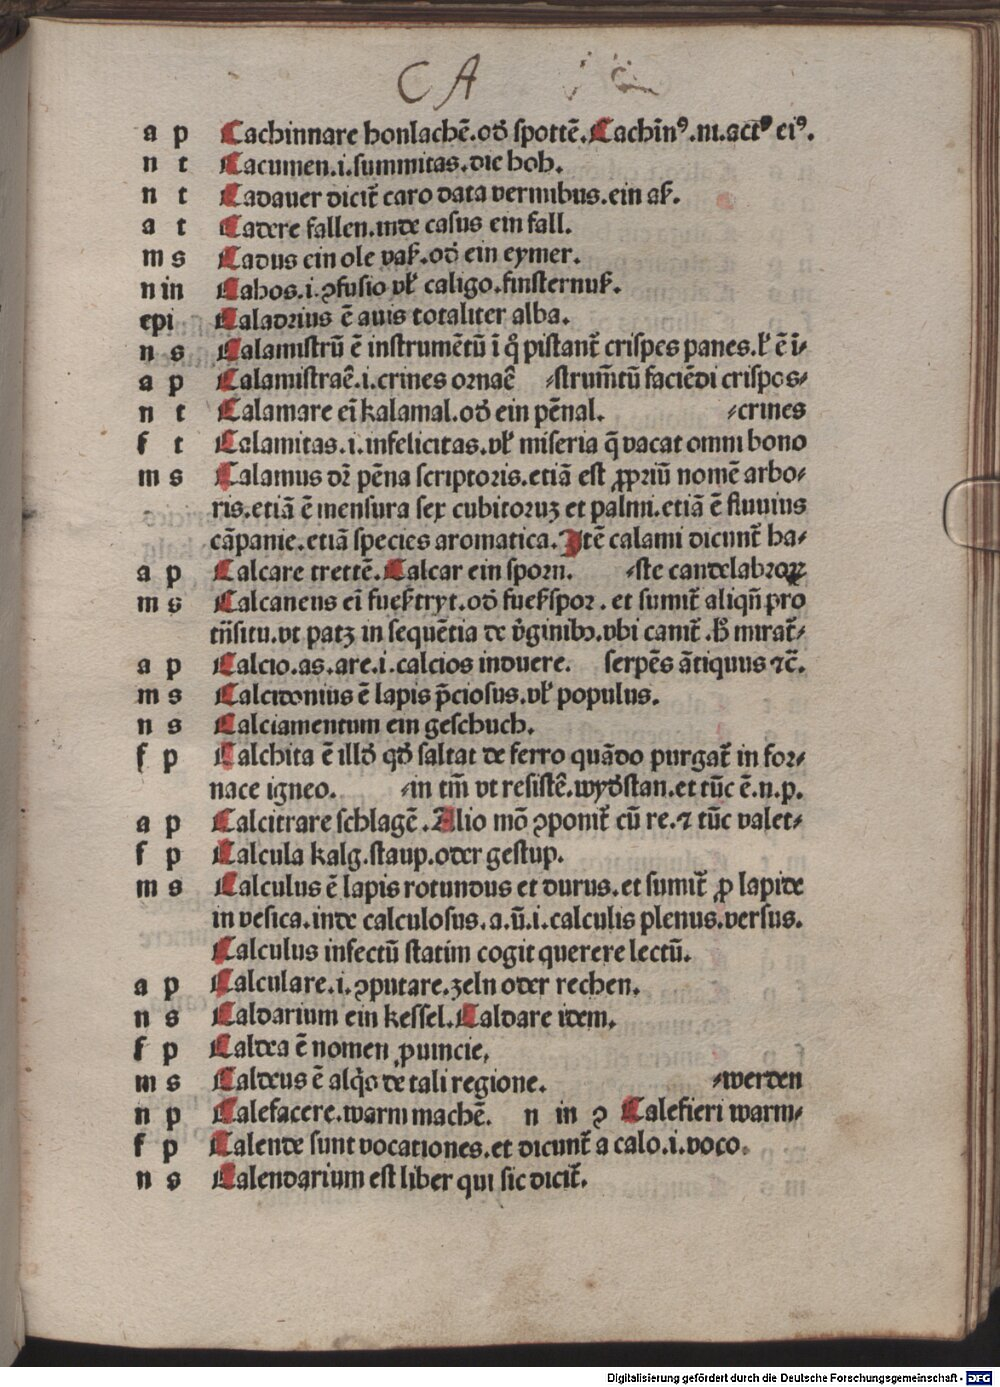 C A
a p Cachinnare honlachē.od̄ spottē.Cachīnꝰ.m.actꝰ eiꝰ.
n t Cacumen.i.summitas.die hoh.
n t Cadauer dicit̄ caro data vermibus.ein aß.
a t Cadere fallen.inde casus ein fall.
m s Cadus ein ole vaß.od̄ ein eymer.
n in Cahos.i.ꝯfusio vł caligo.finsternuß.
epi Caladrius ē auis totaliter alba.
n s Calamistrū ē instrumētū ī q̊ pistant̄ crispes panes.ł ē ī⸗
a p Calamistraē.i.crines ornaē ⸗strum̄tū faciēdi crispos⸗
n t Calamare eī kalamal.od̄ ein pēnal. ⸗crines
f t Calamitas.i.infelicitas.vł miseria q̄ vacat omni bono
m s Calamus dr̄ pēna scriptoris.etiā est ꝓpriū nomē arbo⸗
ris.etiā ē mensura sex cubitoruʒ et palmi.etiā ē fluuius
cāpanie.etiā species aromatica.Itē calami dicunt̄ ha⸗
a p Calcare trettē.Calcar ein sporn. ⸗ste candelabroꝝ
m s Calcaneus eī fueßtryt.od̄ fueßspor.et sumit̄ aliqn̄ pro
trn̄situ.vt patʒ in sequētia de v̄ginibꝯ.vbi canit̄.h̄ mirat̄⸗
a p Calcio.as.are.i.calcios induere. serpēs ātiquus ⁊c̄.
m s Calcidonius ē lapis p̄ciosus.vł populus.
n s Calciamentum ein geschuch.
f p Calchita ē illd̄ qd̄ saltat de ferro quādo purgat̄ in for⸗
nace igneo. ⸗in tm̄ vt resistē.wyd̄stan.et tūc ē.n.p.
a p Calcitrare schlagē.Alio mō ꝯponit̄ cū re.⁊ tūc valet⸗
f p Calcula kalg.staup.oder gestup.
m s Calculus ē lapis rotundus et durus.et sumit̄ ꝓ lapide
in vesica.inde calculosus.a.ū.i.calculis plenus.versus.
Calculus infectū statim cogit querere lectū.
a p Calculare.i.ꝯputare.zeln oder rechen.
n s Caldarium ein kessel.Caldare idem.
f p Caldea ē nomen ꝓuincie.
m s Caldeus ē alq̊s de tali regione. ⸗werden
n p Calefacere.warm machē. n in ꝯ Calefieri warm⸗
f p Calende sunt vocationes.et dicunt̄ a calo.i.voco.
n s Calendarium est liber qui sic dicit̄.
Digitalisierung gefördert durch die Deutsche Forschungsgemeinschaft - DFG